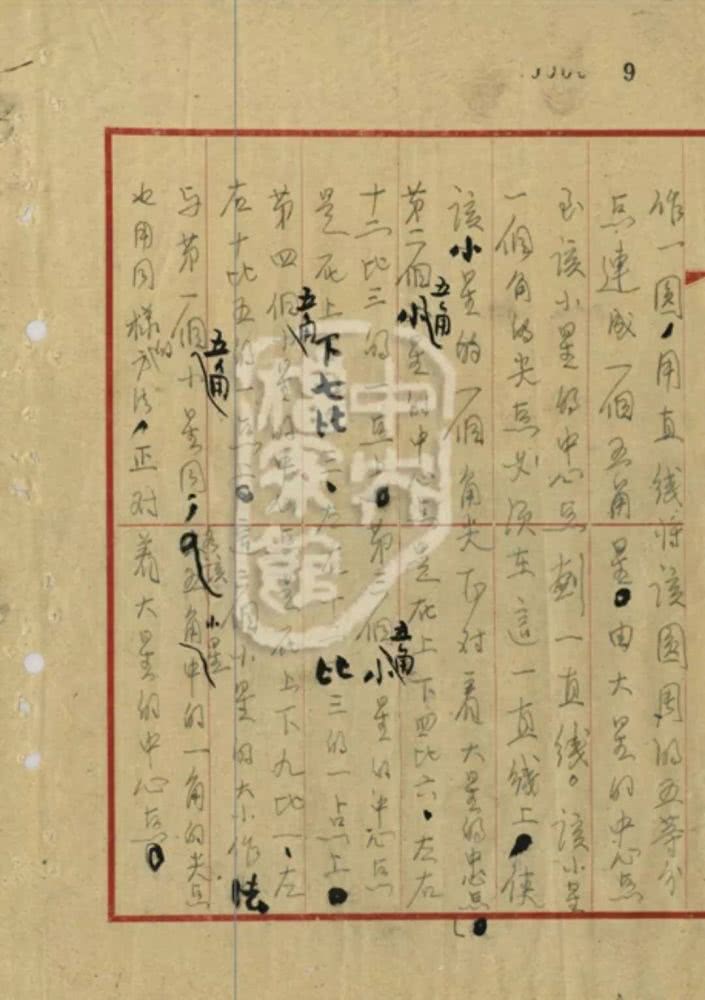 9
作一圆，用直线将该圆周的五等分
点連成一個五角星。由大星的中心点
到該小星的中心点劃一直线。該小星
一個角的尖点必須在這一直线上，使
該小星的一個角尖正对着大星的中心点。
第二個小五角星的中心点是在上下四比六、左右
十二比三的一点上。第三個小五角星的中心点
是在上下七比三、左右十二比三的一点上。
第四個五角星的中心点是在上下九比一、左
右十比五的一点上。這三個小星的大小作法
与第一個五角小星同；各該小星五角中的一角的尖点
也用同樣的方法，正对着大星的中心点。
中央檔案館